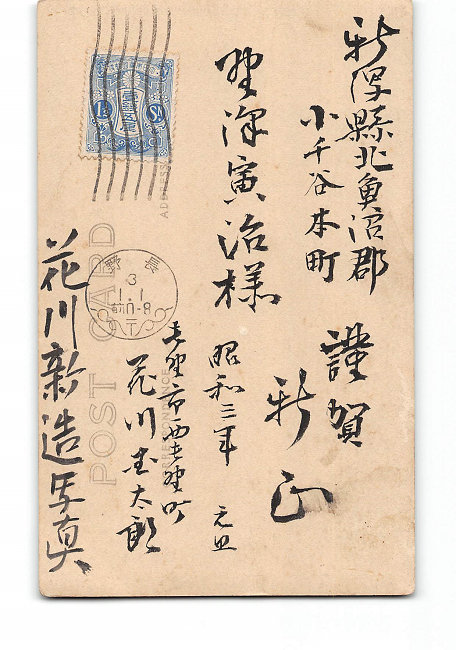 新潟縣北魚沼郡
小千谷本町
野澤寅治様
謹賀
新正
昭和三年 元旦
長野市西長野町
花川圭太郎
花川新造写真
POST CARD
CORRESPONDENCE
ADDRESS
長野
3
1.1
前0-8
1½ Sn